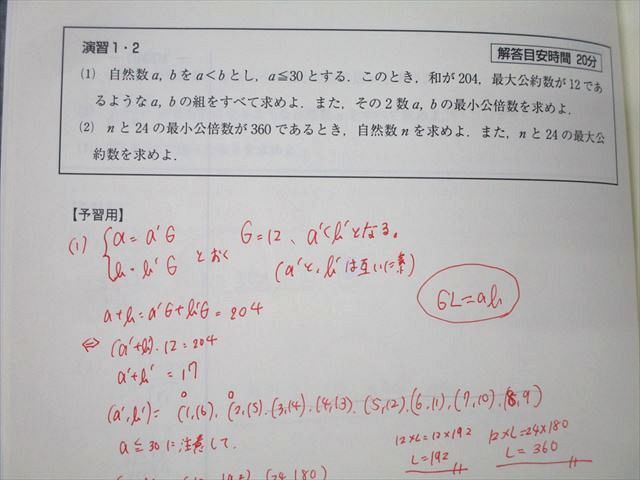 演習1・2
解答目安時間 20分
(1) 自然数a, bをa<bとし, a≦30とする. このとき, 和が204, 最大公約数が12であ
るようなa, bの組をすべて求めよ. また, その2数a, bの最小公倍数を求めよ.
(2) nと24の最小公倍数が360であるとき, 自然数nを求めよ. また, nと24の最大公
約数を求めよ.
【予習用】
(1) { a = a'G
b = b'G とおく
G=12、a'<b'となる。
(a'と、b'は互いに素)
GL=ab
a+b=a'G+b'G=204
⇔ (a'+b')・12=204
a'+b'=17
(a',b')= (1,16), (2,15), (3,14), (4,13), (5,12), (6,11), (7,10), (8,9)
a≦30に注意して、
12×L=12×192
L=192
12×L=24×180
L=360
(24,180)